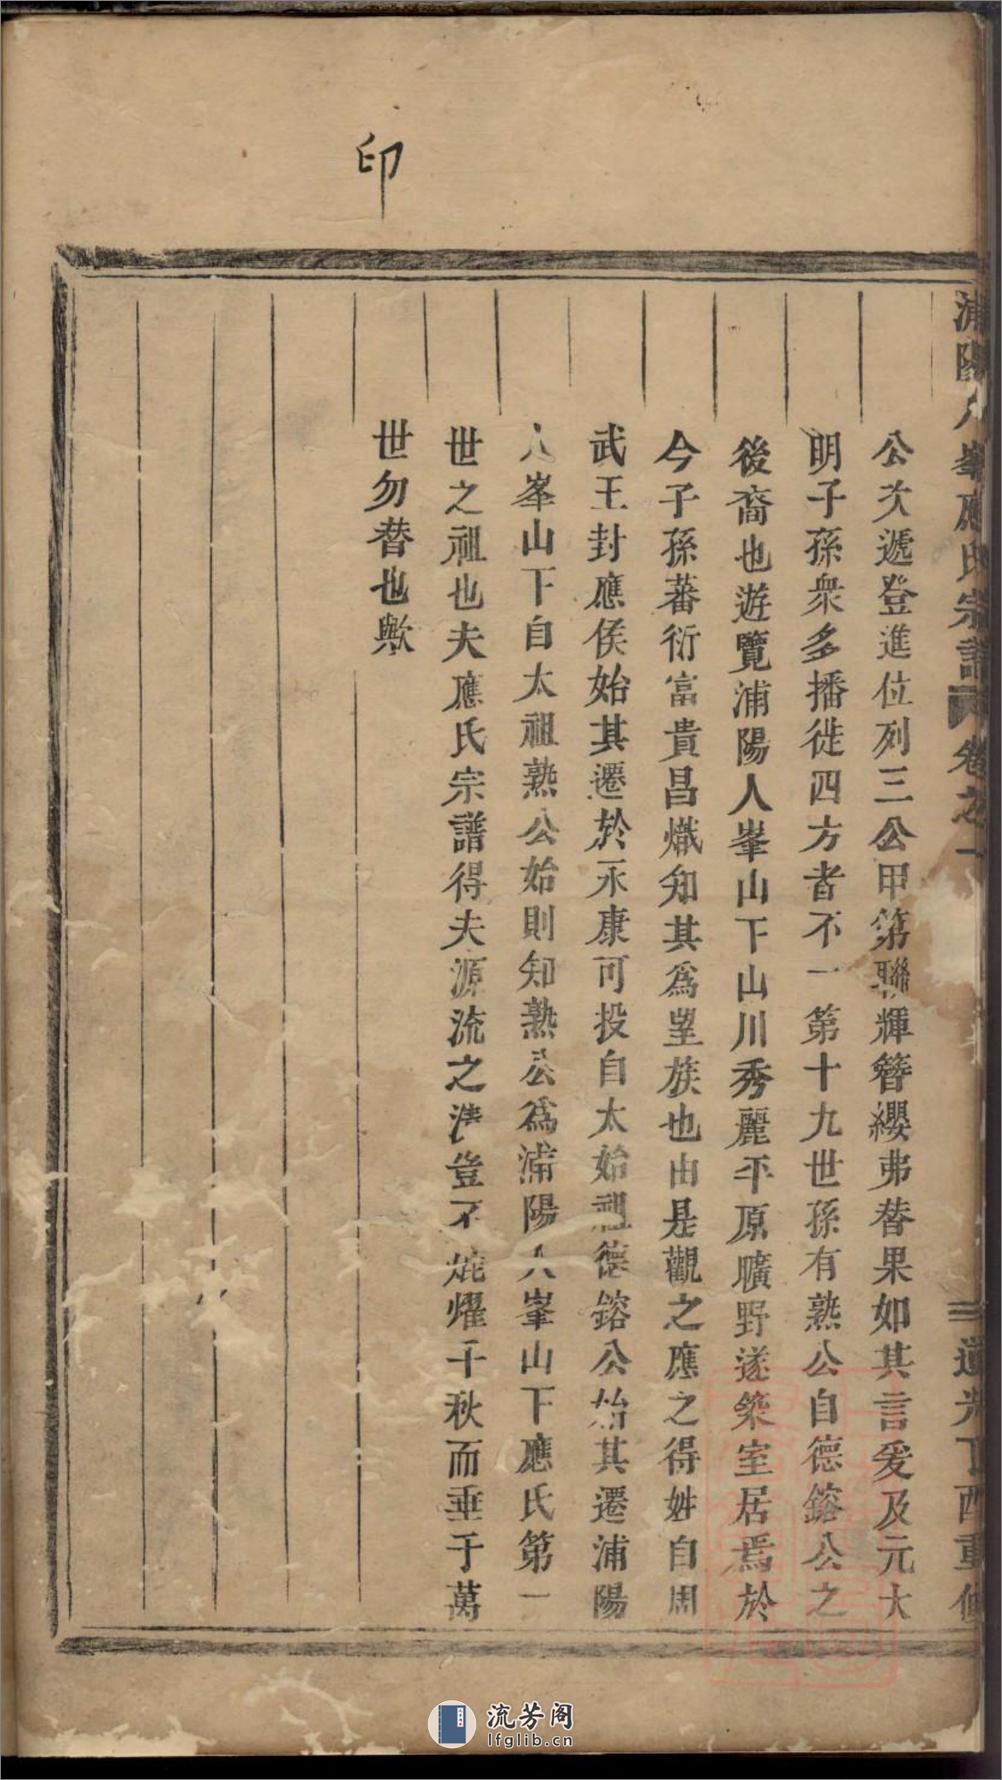 印
浦陽八峯應氏宗譜 卷之一 二 道光丁酉重修
公次遞登進位列三公甲第聯輝簪纓弗替果如其言爰及元大
明子孫衆多播徙四方者不一第十九世孫有熟公自德鎔公之
後裔也遊覽浦陽人峯山下山川秀麗平原曠野遂築室居焉於
今子孫蕃衍富貴昌熾知其爲望族也由是觀之應之得姓自周
武王封應侯始其遷於永康可投自太始祖德鎔公始其遷浦陽
人峯山下自太祖熟公始則知熟公爲浦陽人峯山下應氏第一
世之祖也夫應氏宗譜得夫源流之清豈不焜耀千秋而垂于萬
世勿替也歟
流芳阁
lfglib.cn